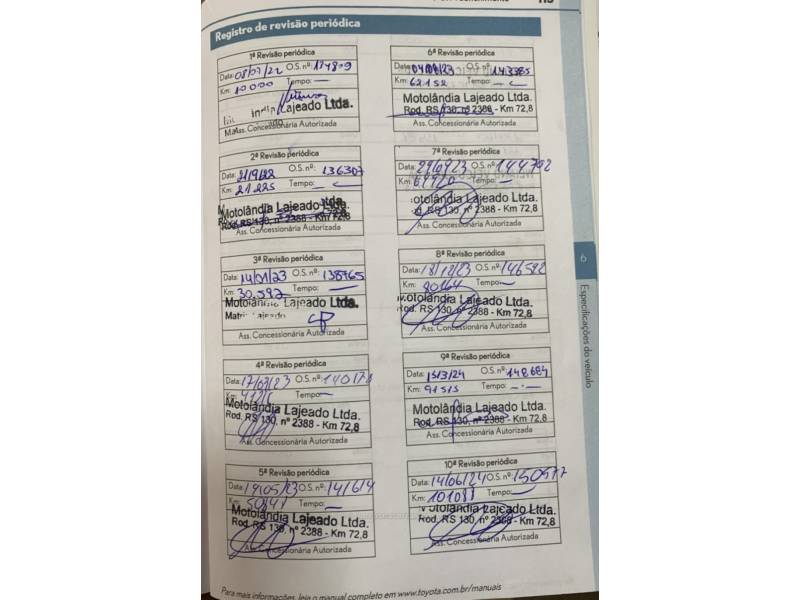 Registro de revisão periódica
1ª Revisão periódica
Data: O.S. nº: 134809
Km: 10000 Tempo: —
Lajeado Ltda.
Ass. Concessionária Autorizada
2ª Revisão periódica
Data: O.S. nº: 136307
Km: 21225 Tempo: —
Motolândia Lajeado Ltda.
Rod. RS 130, nº 2388 - Km 72,8
Ass. Concessionária Autorizada
3ª Revisão periódica
Data: 14/01/23 O.S. nº: 138765
Km: 30.592 Tempo: —
Motolândia Lajeado Ltda.
Ass. Concessionária Autorizada
4ª Revisão periódica
Data: 17/03/23 O.S. nº:
Km: Tempo: —
Motolândia Lajeado Ltda.
Rod. RS 130, nº 2388 - Km 72,8
Ass. Concessionária Autorizada
5ª Revisão periódica
Data: 19/05/23 O.S. nº: 141614
Km: Tempo: —
Motolândia Lajeado Ltda.
Rod. RS 130, nº 2388 - Km 72,8
Ass. Concessionária Autorizada
6ª Revisão periódica
Data: O.S. nº: 143385
Km: 62152 Tempo: —
Motolândia Lajeado Ltda.
Rod. RS 130, nº 2388 - Km 72,8
Ass. Concessionária Autorizada
7ª Revisão periódica
Data: O.S. nº: 144792
Km: Tempo: —
otolândia Lajeado Ltda.
d. RS 130, nº 2388 - Km 72,8
Ass. Concessionária Autorizada
8ª Revisão periódica
Data: 18/12/23 O.S. nº: 146592
Km: 80464 Tempo: —
Motolândia Lajeado Ltda.
od. RS 130, nº 2388 - Km 72,8
Ass. Concessionária Autorizada
9ª Revisão periódica
Data: 15/3/24 O.S. nº: 148.684
Km: 91515 Tempo: —
Motolândia Lajeado Ltda.
Rod. RS 130, nº 2388 - Km 72,8
Ass. Concessionária Autorizada
10ª Revisão periódica
Data: 14/06/24 O.S. nº: 150577
Km: 101081 Tempo: —
otolândia Lajeado Ltda.
Rod. RS 130, nº 2388 - Km 72,8
Ass. Concessionária Autorizada
6
Especificações do veículo
Para mais informações, leia o manual completo em www.toyota.com.br/manuais